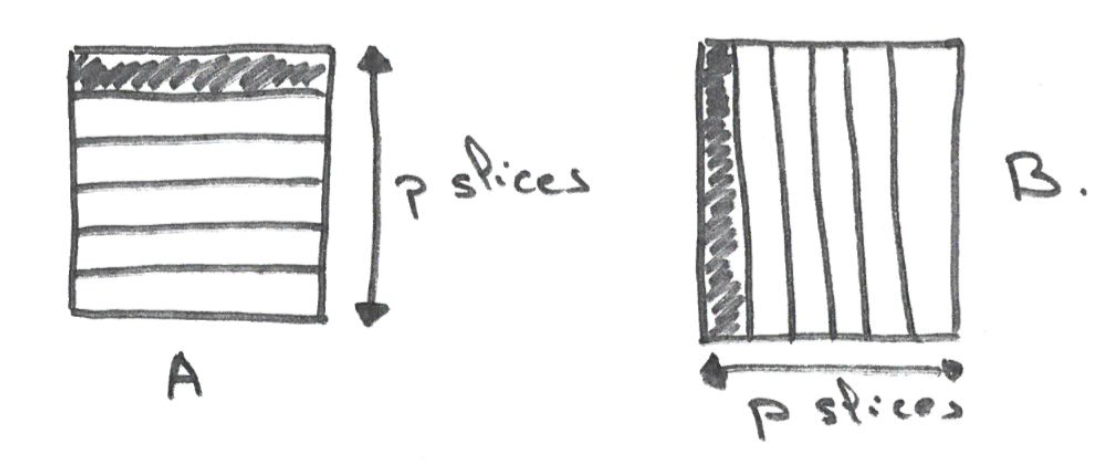 p slices
A
B.
p slices